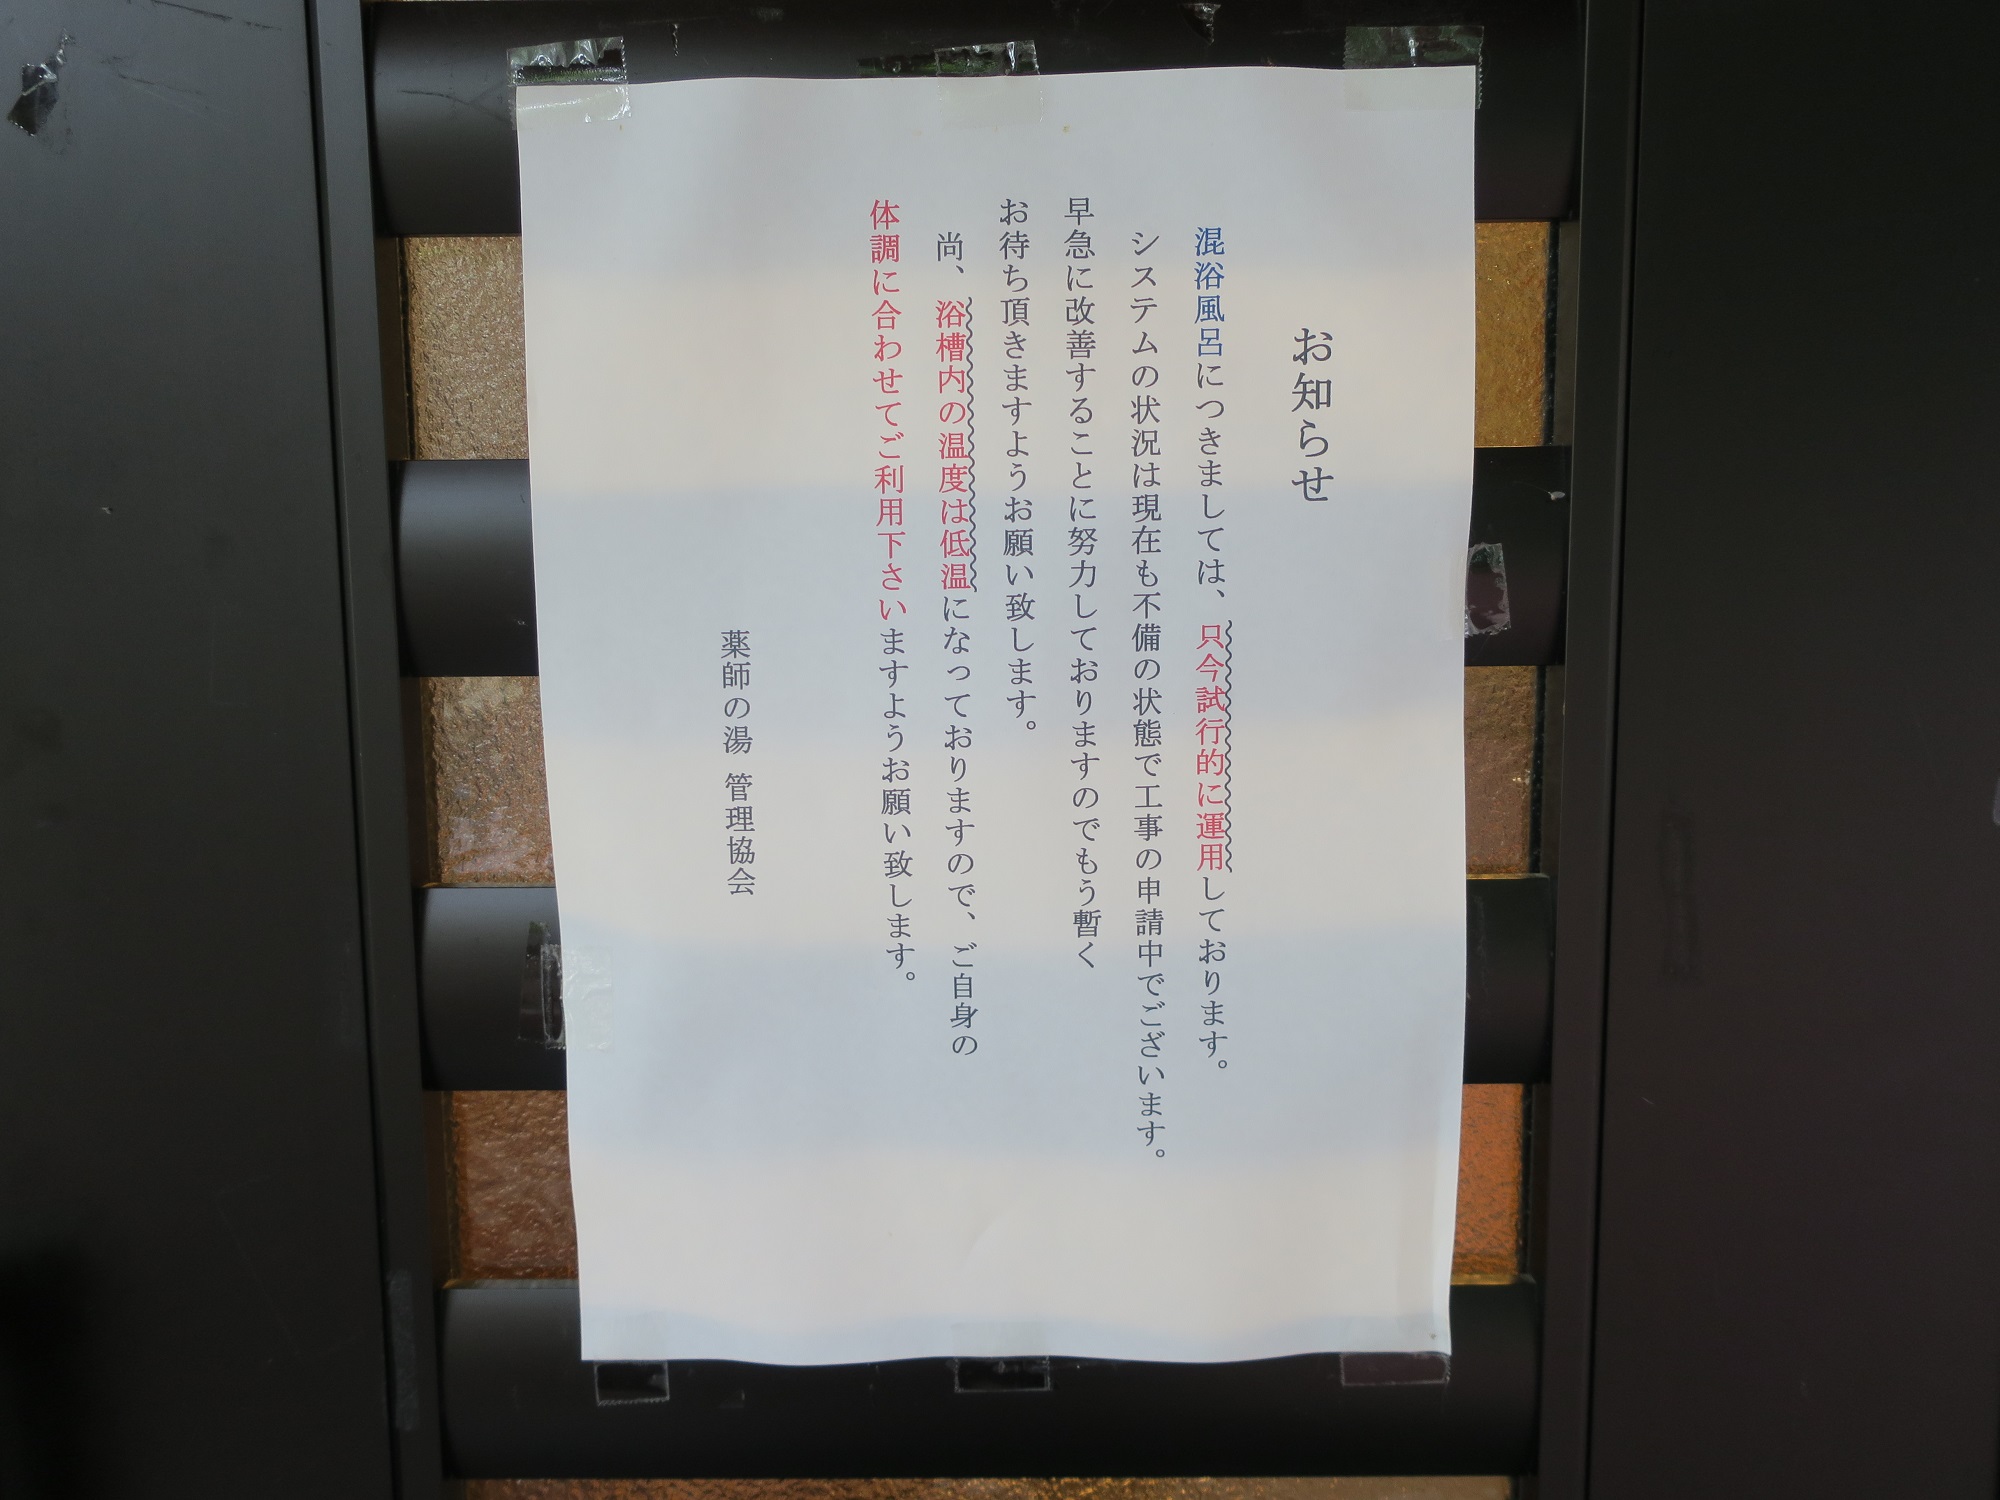 お知らせ
混浴風呂につきましては、只今試行的に運用しております。
システムの状況は現在も不備の状態で工事の申請中でございます。
早急に改善することに努力しておりますのでもう暫く
お待ち頂きますようお願い致します。
尚、浴槽内の温度は低温になっておりますので、ご自身の
体調に合わせてご利用下さいますようお願い致します。
薬師の湯 管理協会